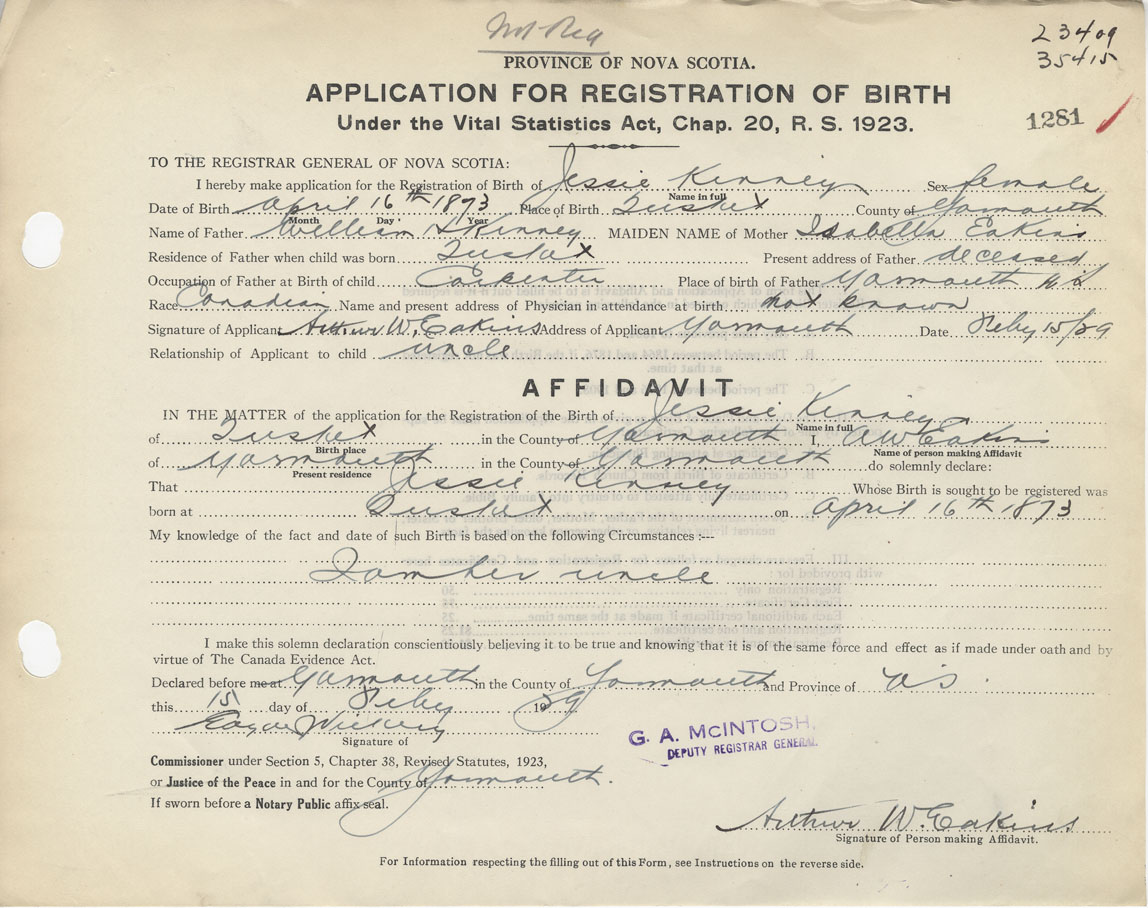 Not Reg
23409
35415
PROVINCE OF NOVA SCOTIA.
APPLICATION FOR REGISTRATION OF BIRTH
Under the Vital Statistics Act, Chap. 20, R. S. 1923.
1281
TO THE REGISTRAR GENERAL OF NOVA SCOTIA:
I hereby make application for the Registration of Birth of Jessie Kinney Sex female
Name in full
Date of Birth April 16th 1873 Place of Birth Tusket County of Yarmouth
Month Day Year
Name of Father William H Kinney MAIDEN NAME of Mother Isabella Eakins
Residence of Father when child was born Tusket Present address of Father deceased
Occupation of Father at Birth of child Carpenter Place of birth of Father Yarmouth N S
Race Canadian Name and present address of Physician in attendance at birth not known
Signature of Applicant Arthur W. Eakins Address of Applicant Yarmouth Date Feby 15/29
Relationship of Applicant to child uncle
AFFIDAVIT
IN THE MATTER of the application for the Registration of the Birth of Jessie Kinney
Name in full
of Tusket in the County of Yarmouth I, A W Eakins
Birth place Name of person making Affidavit
of Yarmouth in the County of Yarmouth do solemnly declare:
Present residence
That Jessie Kinney Whose Birth is sought to be registered was
born at Tusket on April 16th 1873
My knowledge of the fact and date of such Birth is based on the following Circumstances :---
I am her uncle
I make this solemn declaration conscientiously believing it to be true and knowing that it is of the same force and effect as if made under oath and by
virtue of The Canada Evidence Act.
Declared before me at Yarmouth in the County of Yarmouth and Province of N S
this 15 day of Feby 1929
Signature of
G. A. McINTOSH,
DEPUTY REGISTRAR GENERAL.
Commissioner under Section 5, Chapter 38, Revised Statutes, 1923,
or Justice of the Peace in and for the County of Yarmouth.
If sworn before a Notary Public affix seal.
Arthur W. Eakins
Signature of Person making Affidavit.
For Information respecting the filling out of this Form, see Instructions on the reverse side.